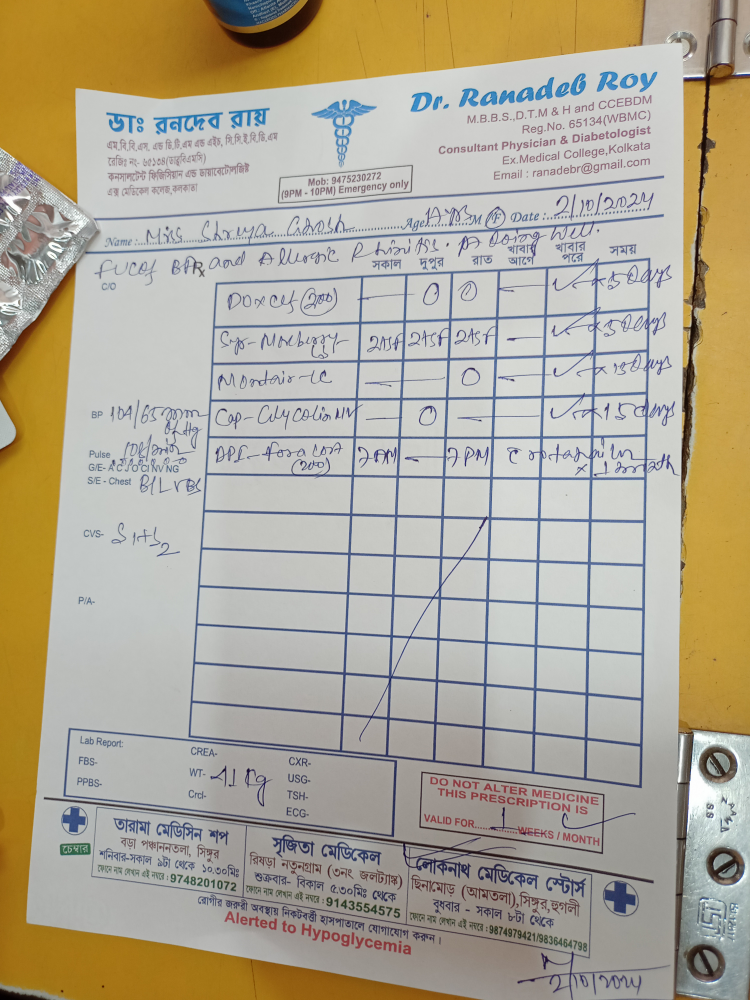 ডাঃ রনদেব রায়
এম.বি.বি.এস. এন্ড ডি.টি.এম এন্ড এইচ, সি.সি.ই.বি.ডি.এম
রেজিঃ নং- ৬৫১৩৪(ডাব্লুবিএমসি)
কনসালটেন্ট ফিজিসিয়ান এন্ড ডায়াবেটোলজিষ্ট
এক্স মেডিকেল কলেজ,কলকাতা
Mob: 9475230272
(9PM - 10PM) Emergency only
Dr. Ranadeb Roy
M.B.B.S.,D.T.M & H and CCEBDM
Reg.No. 65134(WBMC)
Consultant Physician & Diabetologist
Ex.Medical College,Kolkata
Email : ranadebr@gmail.com
Name : Miss Shreya Ghosh Age M F Date : 2/10/2024
and Allergic Rhinitis. Doing Well.
C/O Rx
সকাল দুপুর রাত খাবার আগে খাবার পরে সময়
(200) — 0 0 — ✓ x 5 days
Syp- 2TSF 2TSF 2TSF — ✓ x 5 days
Mondair-LC — 0 — ✓ x 15 days
Cap- — 0 — ✓ x 15 days
BP 104/65 mm of Hg
Pulse
DPI- Foracort (200) 7 AM — 7 PM x 1 month
G/E- A C J O CI NV NG
S/E - Chest B/L VBS
CVS- S1+S2
P/A-
Lab Report:
FBS-
PPBS-
CREA-
WT- 41 Kg
Crcl-
CXR-
USG-
TSH-
ECG-
DO NOT ALTER MEDICINE
THIS PRESCRIPTION IS
VALID FOR 1 WEEKS / MONTH
চেম্বার
তারামা মেডিসিন শপ
বড়া পঞ্চাননতলা, সিঙ্গুর
শনিবার-সকাল ৯টা থেকে ১০.৩০মিঃ
ফোনে নাম লেখান এই নম্বরে : 9748201072
সুজিতা মেডিকেল
রিষড়া নতুনগ্রাম (৩নং জলট্যাঙ্ক)
শুক্রবার- বিকাল ৫.৩০মিঃ থেকে
ফোনে নাম লেখান এই নম্বরে : 9143554575
লোকনাথ মেডিকেল স্টোর্স
ছিনামোড় (আমতলা),সিঙ্গুর,হুগলী
বুধবার - সকাল ৮টা থেকে
ফোনে নাম লেখান এই নম্বরে : 9874979421/9836464798
রোগীর জরুরী অবস্থায় নিকটবর্ত্তী হাসপাতালে যোগাযোগ করুন।
Alerted to Hypoglycemia
2/10/2024